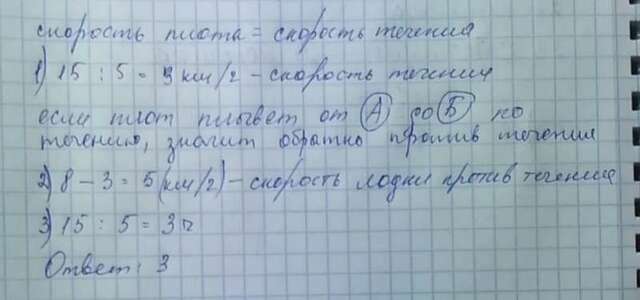 скорость плота = скорость течения
1) 15 : 5 = 3 км/г - скорость течения
если плот плывет от А до Б по
течению, значит обратно против течения
2) 8 - 3 = 5 (км/г) - скорость лодки против течения
3) 15 : 5 = 3 ч
Ответ: 3